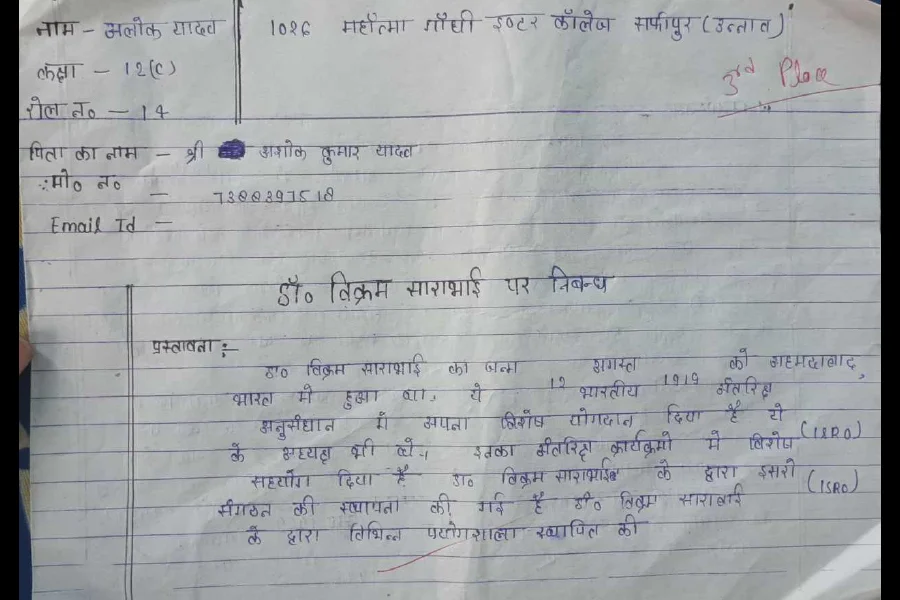 नाम - अलोक यादव
1026 महात्मा गाँधी इण्टर कॉलेज सफीपुर (उन्नाव)
कक्षा - 12(C)
3rd Place
रोल न० - 14
पिता का नाम - श्री अशोक कुमार यादव
मो० न० - 7388397518
Email Id -
डॉ० विक्रम साराभाई पर निबन्ध
प्रस्तावना :-
डा० विक्रम साराभाई का जन्म 12 अगस्त 1919 को अहमदाबाद,
भारत मे हुआ था, ये भारतीय अंतरिक्ष
अनुसंधान में अपना विशेष योगदान दिया है ये (ISRO)
के अध्यक्ष भी थे, इनका अंतरिक्ष कार्यक्रमो मे विशेष
सहयोग दिया है डा० विक्रम साराभाई के द्वारा इसरो (ISRO)
संगठन की स्थापना की गई है डॉ० विक्रम साराबाई
के द्वारा विभिन्न प्रयोगशाला स्थापित की